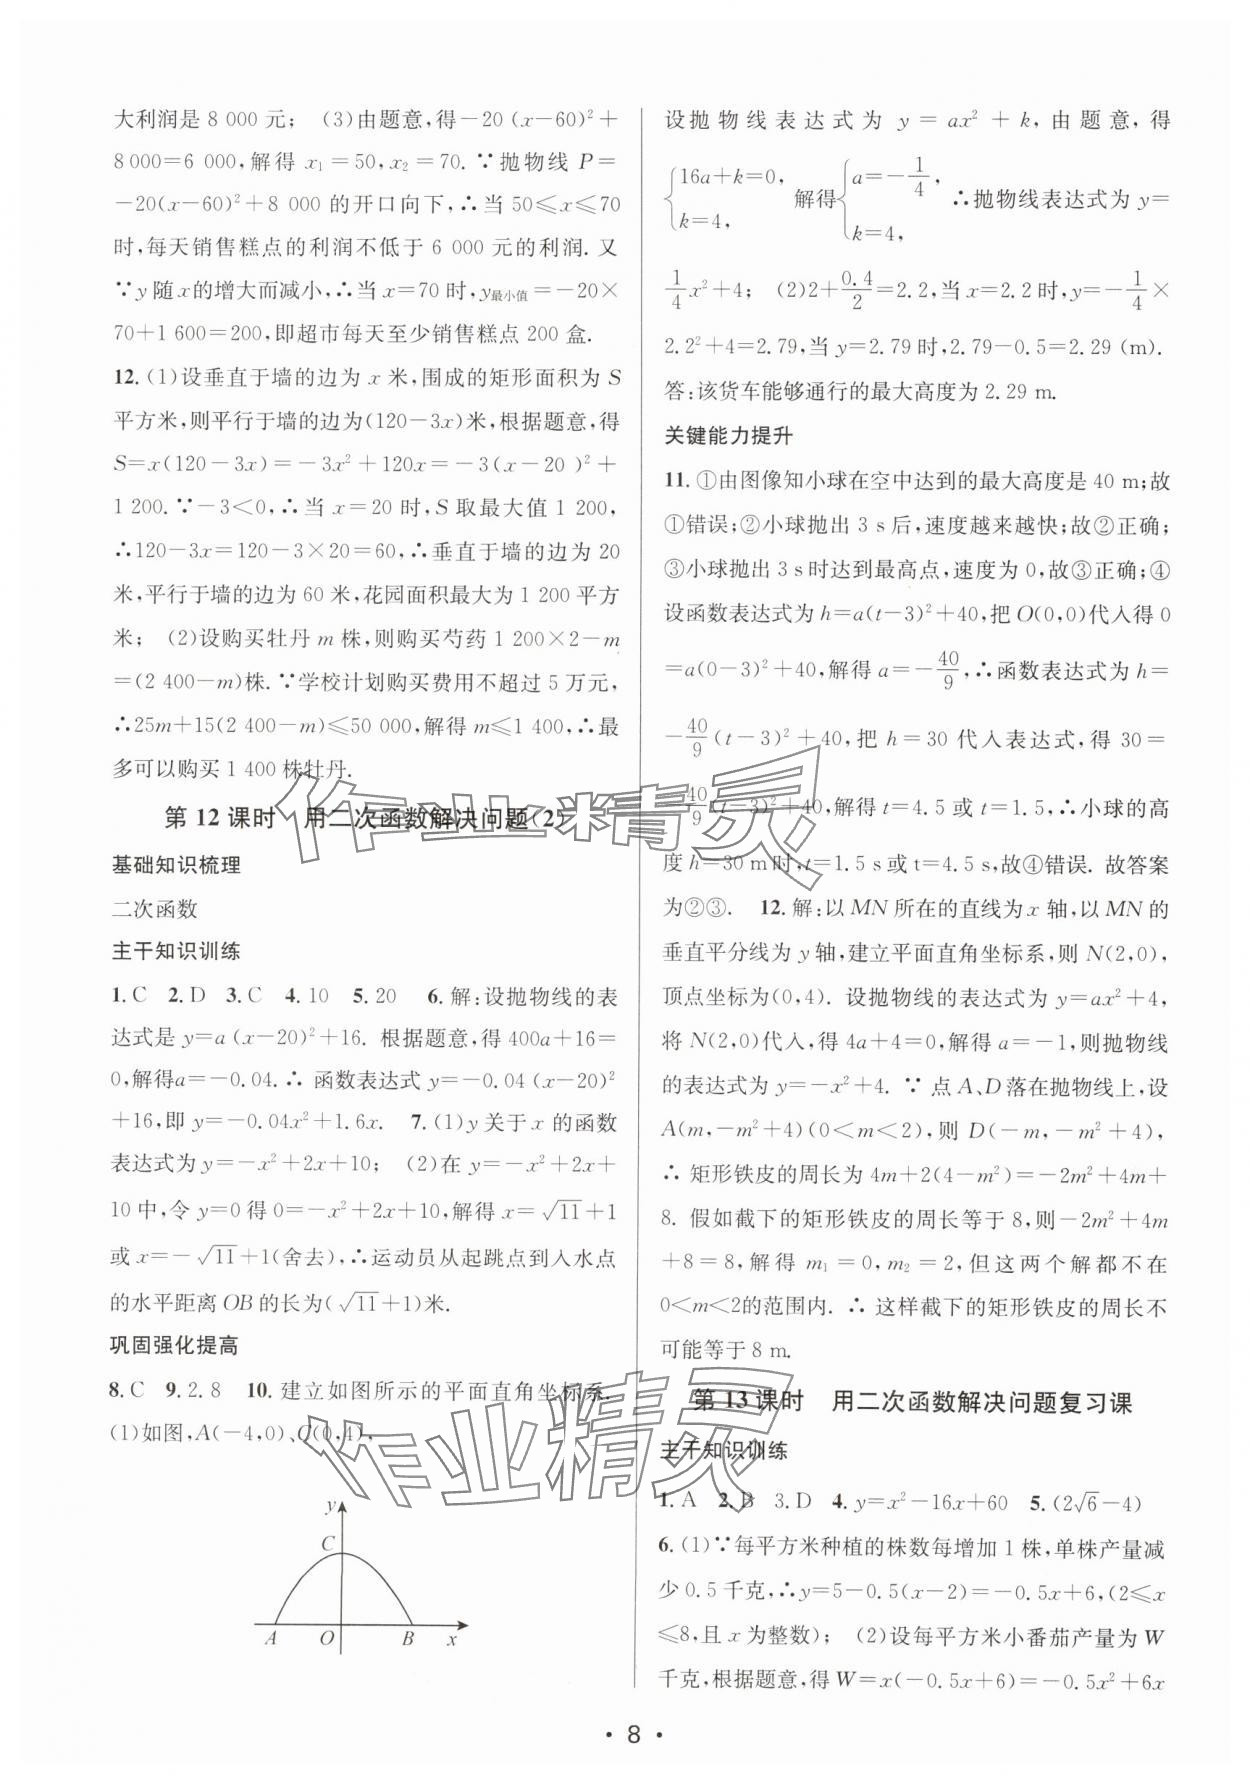 大利润是 8 000 元； (3)由题意,得－20 (x－60)²＋
8 000＝6 000,解得 x₁＝50,x₂＝70. ∵抛物线 P＝
－20(x－60)²＋8 000 的开口向下,∴当 50≤x≤70
时,每天销售糕点的利润不低于 6 000 元的利润. 又
∵y随x的增大而减小,∴当 x＝70 时,y最小值＝－20×
70＋1 600＝200,即超市每天至少销售糕点 200 盒.
12. (1)设垂直于墙的边为 x 米,围成的矩形面积为 S
平方米,则平行于墙的边为(120－3x)米,根据题意,得
S＝x(120－3x)＝－3x²＋120x＝－3(x－20 )²＋
1 200. ∵－3<0,∴当 x＝20 时,S 取最大值 1 200,
∴120－3x＝120－3×20＝60,∴垂直于墙的边为 20
米,平行于墙的边为 60 米,花园面积最大为 1 200 平方
米； (2)设购买牡丹 m 株,则购买芍药 1 200×2－m
＝(2 400－m)株. ∵学校计划购买费用不超过 5 万元,
∴25m＋15(2 400－m)≤50 000,解得 m≤1 400,∴最
多可以购买 1 400 株牡丹.
第 12 课时 用二次函数解决问题(2)
基础知识梳理
二次函数
主干知识训练
1. C 2. D 3. C 4. 10 5. 20 6. 解:设抛物线的表
达式是 y＝a (x－20)²＋16. 根据题意,得 400a＋16＝
0,解得a＝－0.04. ∴ 函数表达式 y＝－0.04 (x－20)²
＋16,即 y＝－0.04x²＋1.6x. 7. (1)y 关于 x 的函数
表达式为 y＝－x²＋2x＋10； (2)在 y＝－x²＋2x＋
10 中,令 y＝0 得 0＝－x²＋2x＋10,解得 x＝√11＋1
或 x＝－√11＋1(舍去),∴运动员从起跳点到入水点
的水平距离 OB 的长为(√11＋1)米.
巩固强化提高
8. C 9. 2.8 10. 建立如图所示的平面直角坐标系.
(1)如图,A(－4,0)、C(0,4),
y
C
A O B x
设抛物线表达式为 y＝ax²＋k,由题意,得
{16a＋k＝0, k＝4, 解得{a＝－1/4, k＝4, ∴抛物线表达式为 y＝
1/4x²＋4； (2)2＋0.4/2＝2.2,当 x＝2.2 时,y＝－1/4×
2.2²＋4＝2.79,当 y＝2.79 时,2.79－0.5＝2.29 (m).
答:该货车能够通行的最大高度为 2.29 m.
关键能力提升
11. ①由图像知小球在空中达到的最大高度是 40 m;故
①错误;②小球抛出 3 s 后,速度越来越快;故②正确;
③小球抛出 3 s时达到最高点,速度为 0,故③正确;④
设函数表达式为 h＝a(t－3)²＋40,把 O(0,0)代入得 0
＝a(0－3)²＋40,解得 a＝－40/9,∴函数表达式为 h＝
－40/9(t－3)²＋40,把 h＝30 代入表达式,得 30＝
－40/9(t－3)²＋40,解得 t＝4.5 或 t＝1.5,∴小球的高
度 h＝30 m时,t＝1.5 s或 t＝4.5s,故④错误. 故答案
为②③. 12. 解:以 MN 所在的直线为 x 轴,以 MN 的
垂直平分线为 y 轴,建立平面直角坐标系,则 N(2,0),
顶点坐标为(0,4). 设抛物线的表达式为 y＝ax²＋4,
将 N(2,0)代入,得 4a＋4＝0,解得 a＝－1,则抛物线
的表达式为 y＝－x²＋4. ∵ 点 A、D 落在抛物线上,设
A(m,－m²＋4)(0＜m＜2),则 D(－m,－m²＋4),
∴ 矩形铁皮的周长为 4m＋2(4－m²)＝－2m²＋4m＋
8. 假如截下的矩形铁皮的周长等于 8,则－2m²＋4m
＋8＝8,解得 m₁＝0,m₂＝2,但这两个解都不在
0<m<2的范围内. ∴ 这样截下的矩形铁皮的周长不
可能等于 8 m.
第 13 课时 用二次函数解决问题复习课
主干知识训练
1. A 2. B 3. D 4. y＝x²－16x＋60 5. (2√6－4)
6. (1)∵每平方米种植的株数每增加 1 株,单株产量减
少 0.5 千克,∴y＝5－0.5(x－2)＝－0.5x＋6,(2≤x
≤8,且 x 为整数)； (2)设每平方米小番茄产量为 W
千克,根据题意,得 W＝x(－0.5x＋6)＝－0.5x²＋6x
· 8 ·
作业精灵
作业精灵